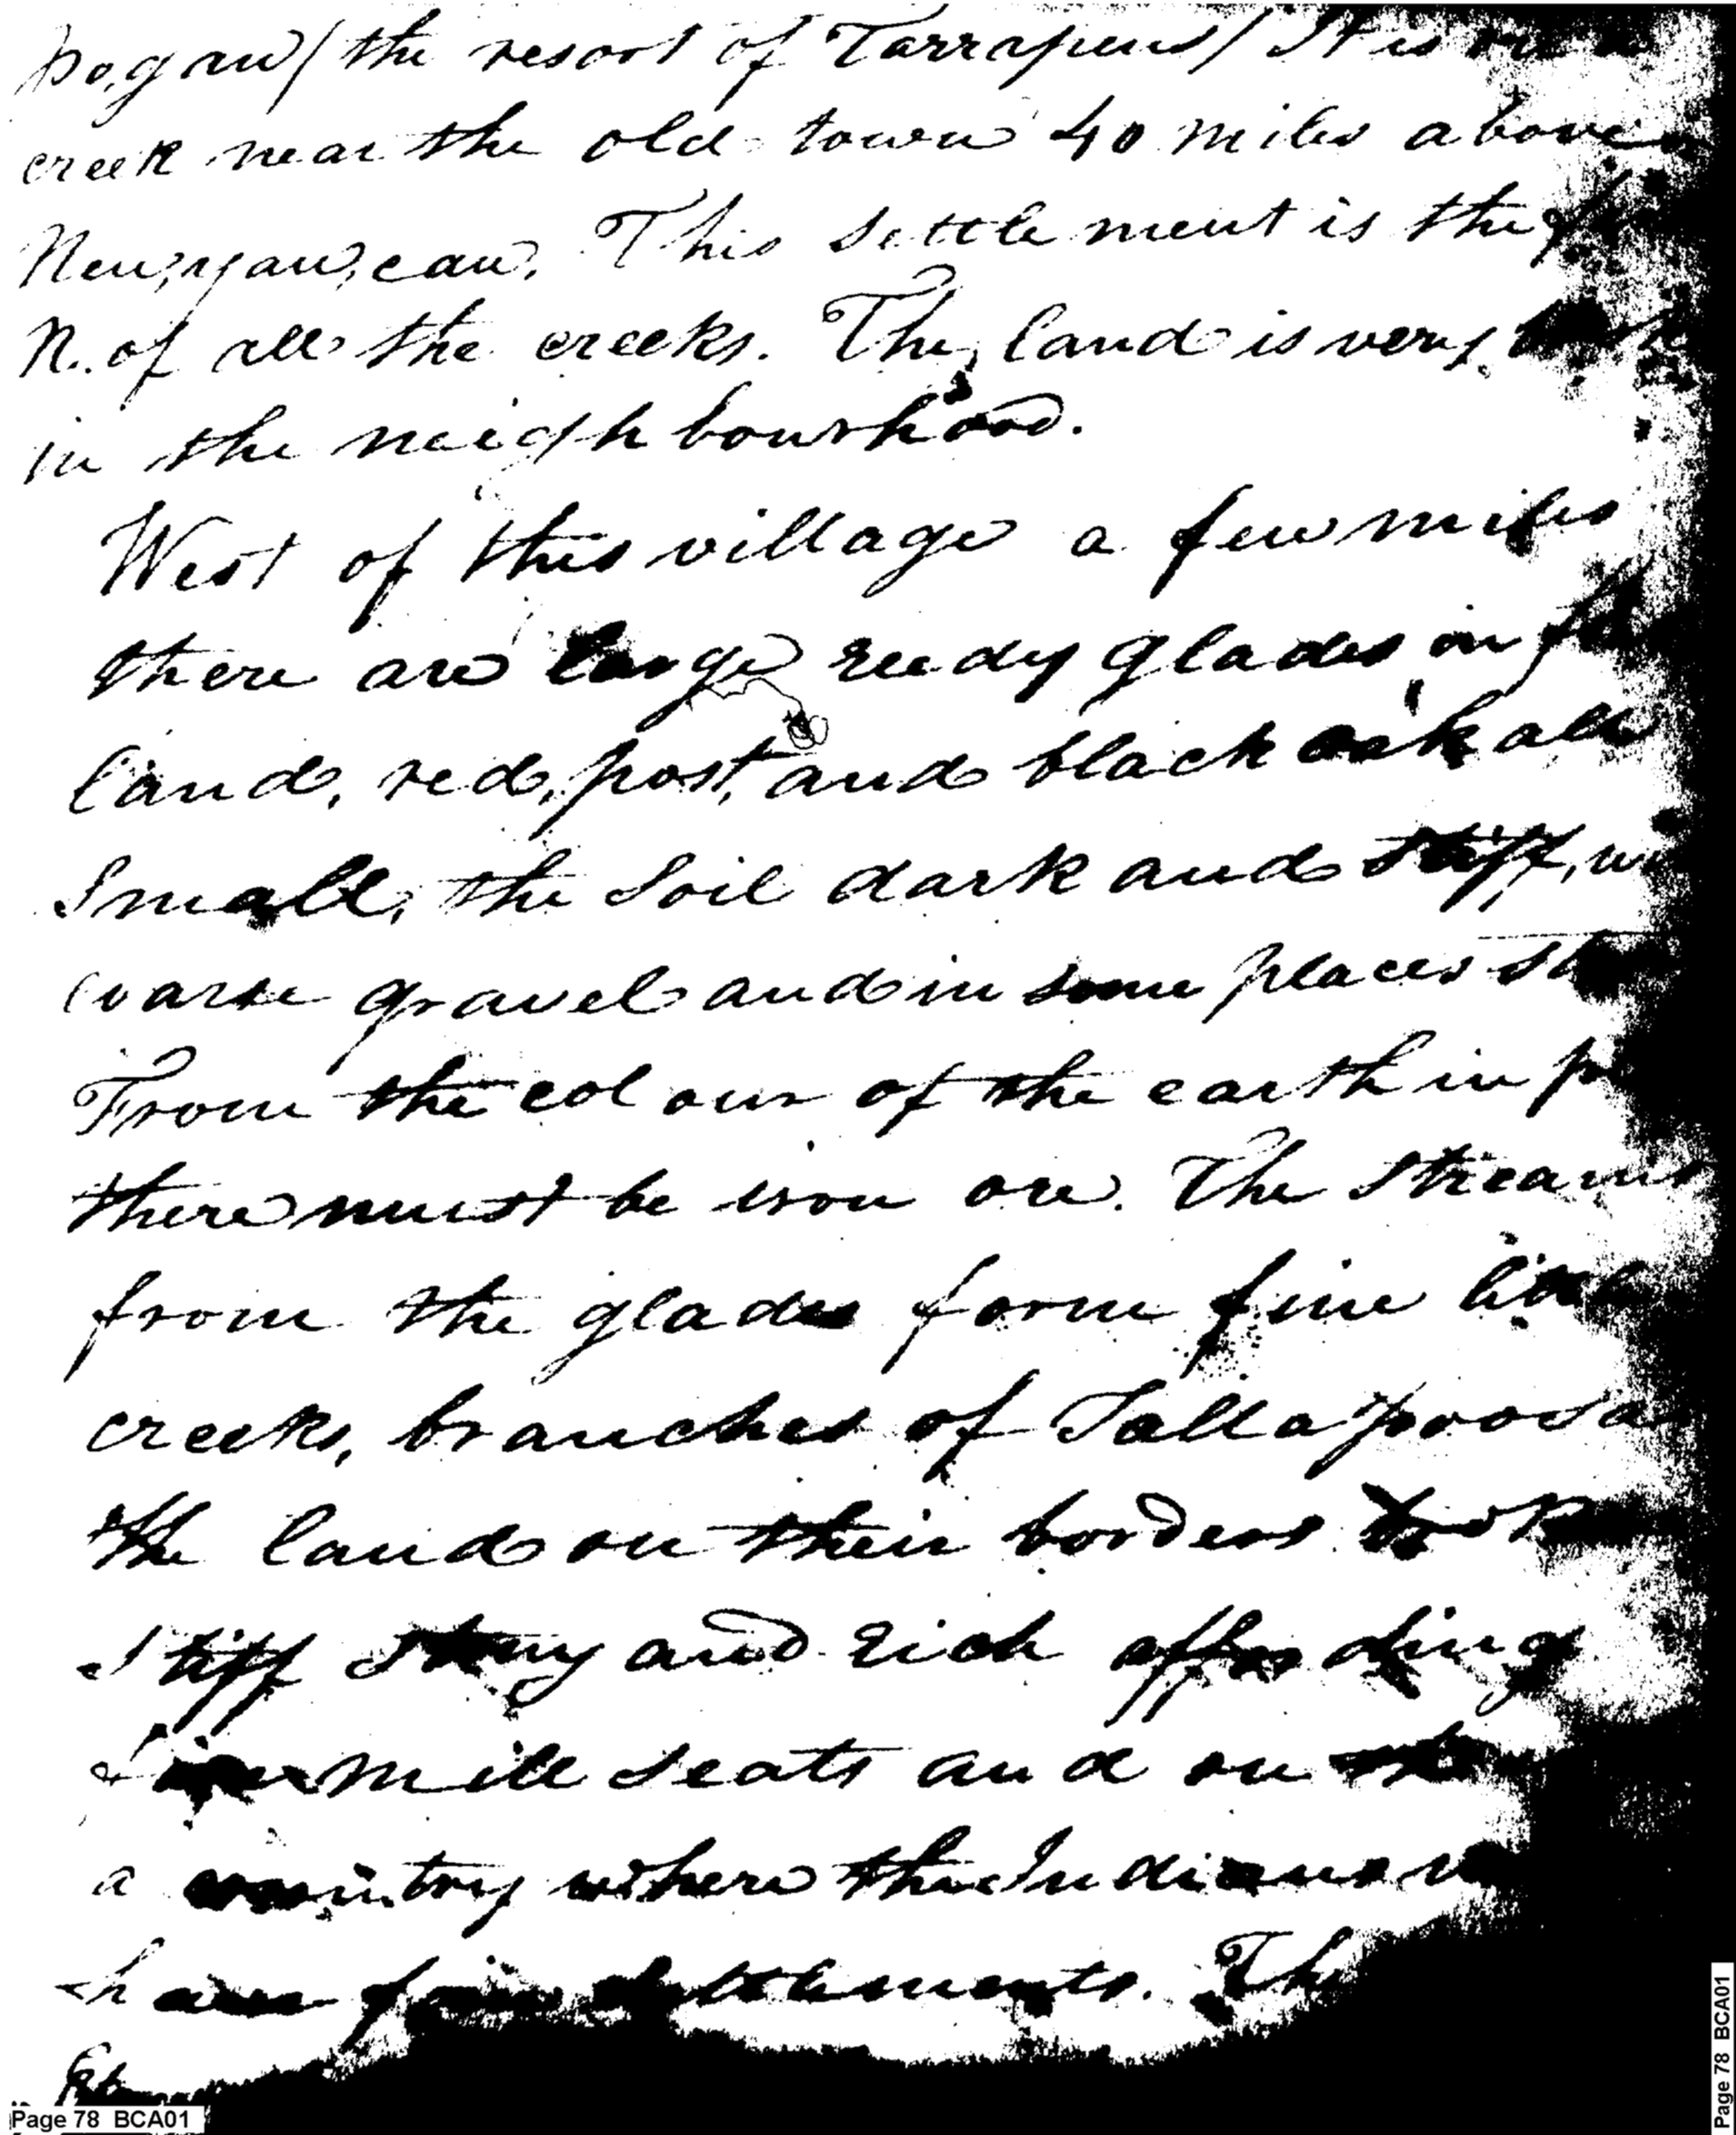 po,gau/ the resort of Tarrapens/ It is on a
creek near the old town 40 miles above
New,yau,cau. This settlement is the
N. of all the creeks. The land is very
in the neighbourhood.
West of this village a few miles
there are large reedy glades in
land, red, post, and black oak all
small, the soil dark and stiff,
coarse gravel and in some places
From the colour of the earth in
there must be iron ore. The streams
from the glades form fine little
creeks, branches of Tallapoosa
the land on their borders
stiff stony and rich affording
mill seats and on the
a country where the Indians
have settlements. Th
Page 78 BCA01
Page 78 BCA01